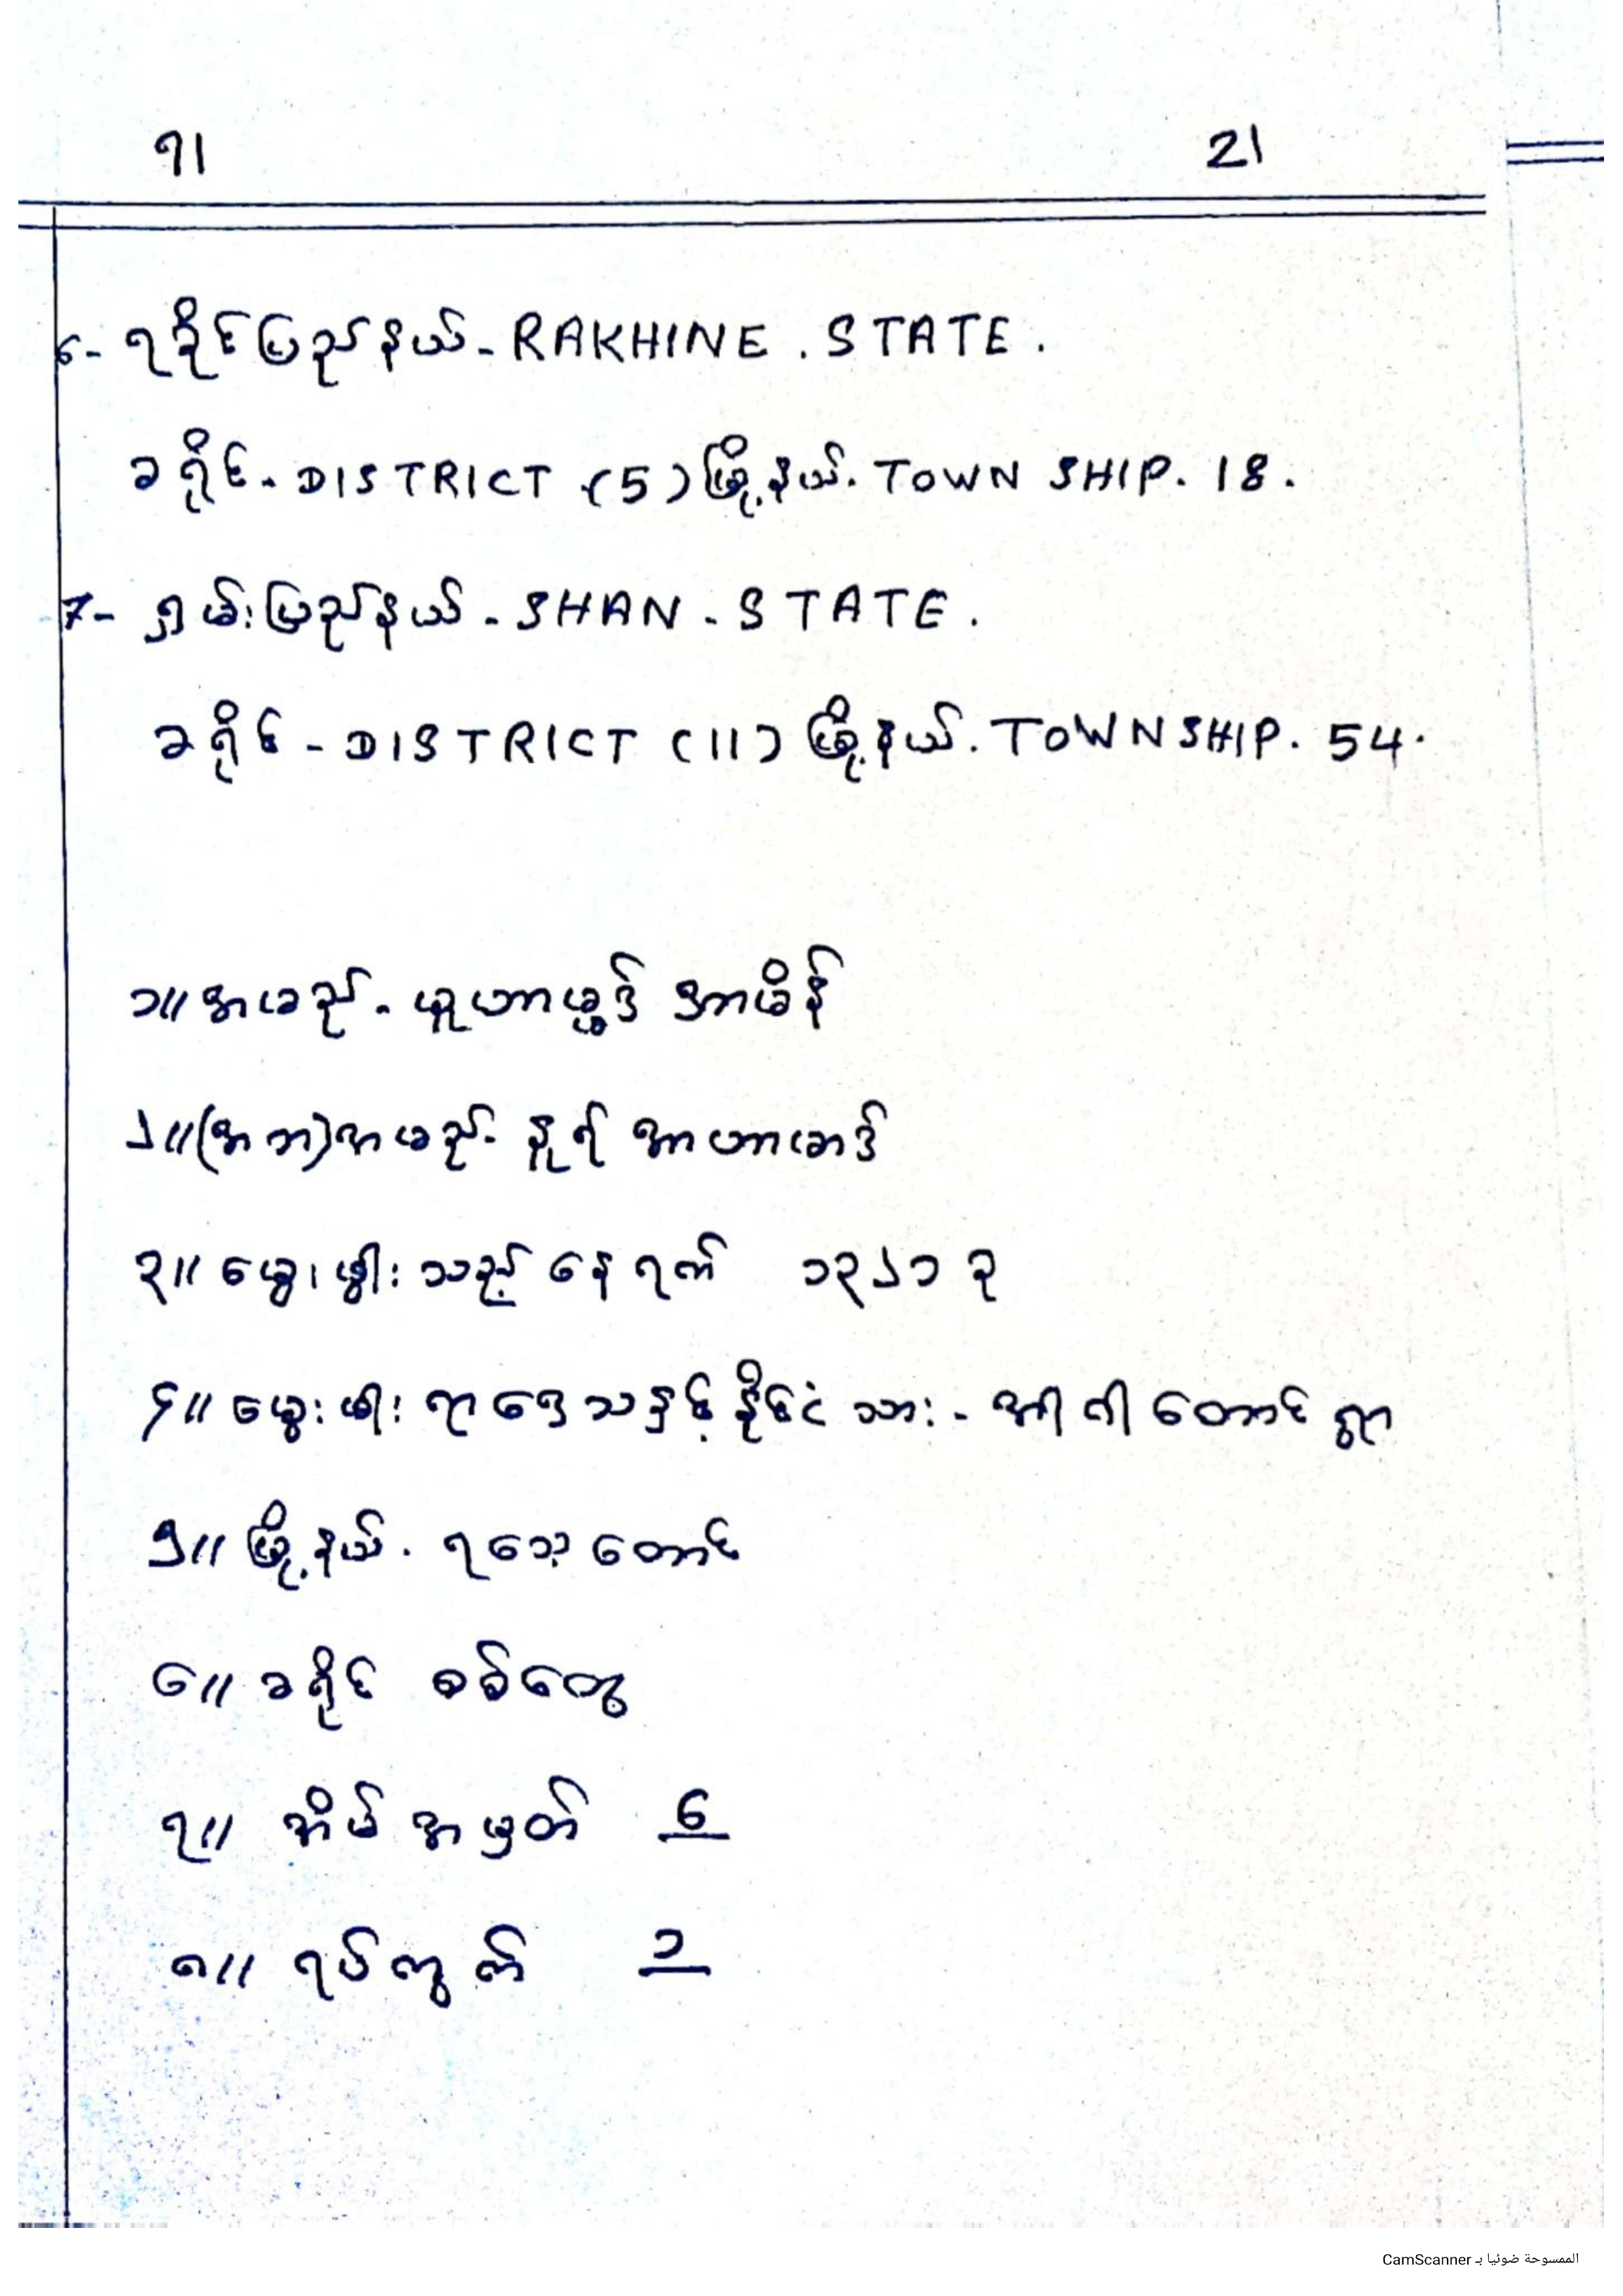 ၇၊ 21
6- ရခိုင်ပြည်နယ်-RAKHINE . STATE .
ခရိုင်-DISTRICT (5) မြို့နယ်. TOWN SHIP. 18 .
7- ရှမ်းပြည်နယ် - SHAN - STATE .
ခရိုင် - DISTRICT (11) မြို့နယ်. TOWNSHIP. 54.
၁။ အမည် - မူဟာမ္မဒ် အာမိန်
၂။ (အဘ) အမည် - နူရ် အာဟာမေဒ်
၃။ မွေးဖွါးသည့် နေ့ရက် ၁၃၂၁ ခု
၄။ မွေးဖါးရာဒေသနှင့် နိုင်ငံသား - အါဂါတောင်ရွာ
၅။ မြို့နယ် . ရသေ့တောင်
၆။ ခရိုင် စစ်တွေ
၇။ အိမ်အမှတ် ၆
၈။ ရပ်ကွက် ၁
الممسوحة ضوئيا بـ CamScanner